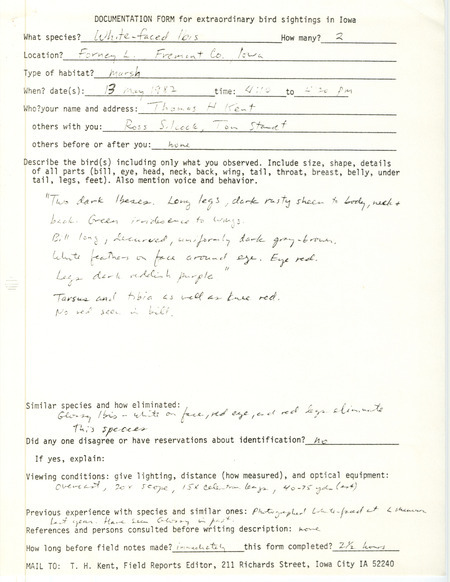 DOCUMENTATION FORM for extraordinary bird sightings in Iowa
What species? White-faced Ibis How many? 2
Location? Forney L. Fremont Co. Iowa
Type of habitat? marsh
When? date(s): 13 May 1982 time: to pm
Who? your name and address: Thomas H Kent
others with you: Ross Silcock, Tom
others before or after you: none
Describe the bird(s) including only what you observed. Include size, shape, details
of all parts (bill, eye, head, neck, back, wing, tail, throat, breast, belly, under
tail, legs, feet). Also mention voice and behavior.
"Two dark Ibeses. Long legs, dark rusty sheen to body, neck +
back. Green iridescence to wings.
Bill long, decurved, uniformly dark gray-brown.
White feathers on face around eye. Eye red.
Legs dark reddish purple"
Tarsus and tibia as well as knee red.
No red seen in bill.
Similar species and how eliminated:
Glossy Ibis - white on face, red eye, and red legs eliminate
this species
Did any one disagree or have reservations about identification? No
If yes, explain:
Viewing conditions: give lighting, distance (how measured), and optical equipment:
overcast, 20x scope, 15x Celestron, 40-75 yds (est)
Previous experience with species and similar ones: Photographed White-faced at
last year. Have seen Glossy in past.
References and persons consulted before writing description: none
How long before field notes made? immediately this form completed? 2½ hours
MAIL TO: T. H. Kent, Field Reports Editor, 211 Richards Street, Iowa City IA 52240